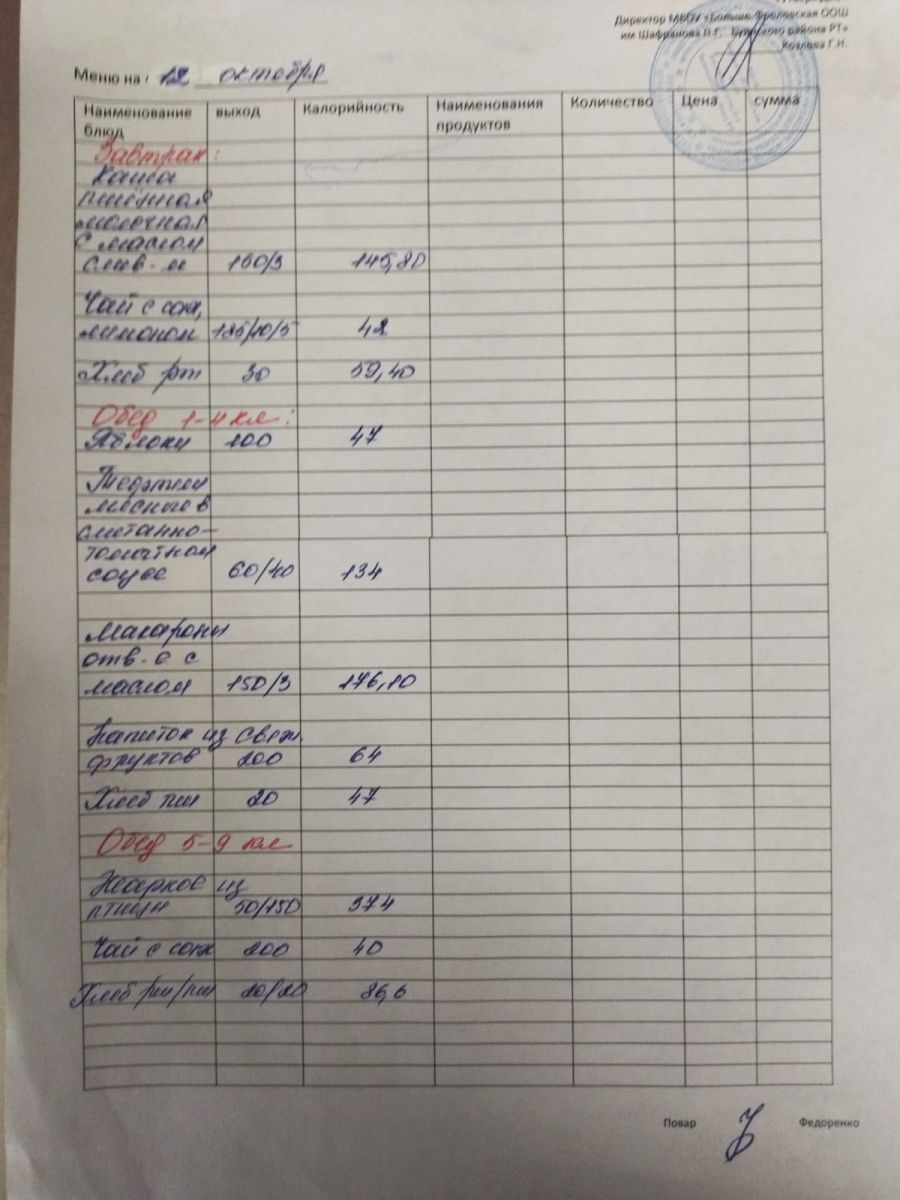 Директор МБОУ «Больше-Фроловская ООШ
им Шафранова П.Г. Буинского района РТ»
Козлова Г.И.
Меню на 12 октября
Наименование блюд выход Калорийность Наименования продуктов Количество Цена сумма
Завтрак:
Каша
пшённая
молочная
с маслом
слив-м 150/3 145,80
Чай с сах,
лимоном 185/10/5 42
Хлеб рж 30 59,40
Обед 1-4 кл:
Яблоки 100 47
Тефтели
мясные в
сметанно-
томатном
соусе 60/40 134
Макароны
отв-е с
маслом 150/3 176,10
Напиток из свеж.
фруктов 200 64
Хлеб пш 20 47
Обед 5-9 кл
Жаркое из
птицы 50/150 374
Чай с сах 200 40
Хлеб рж/пш 20/20 86,6
Повар Федоренко